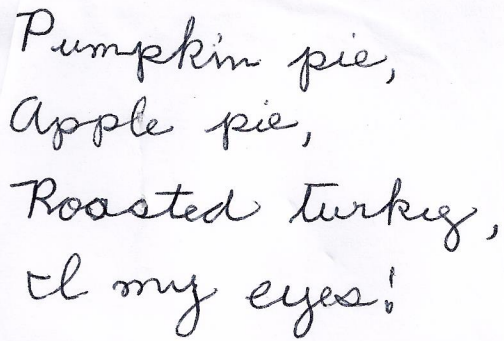 Pumpkin pie,
Apple pie,
Roasted turkey,
I my eyes!